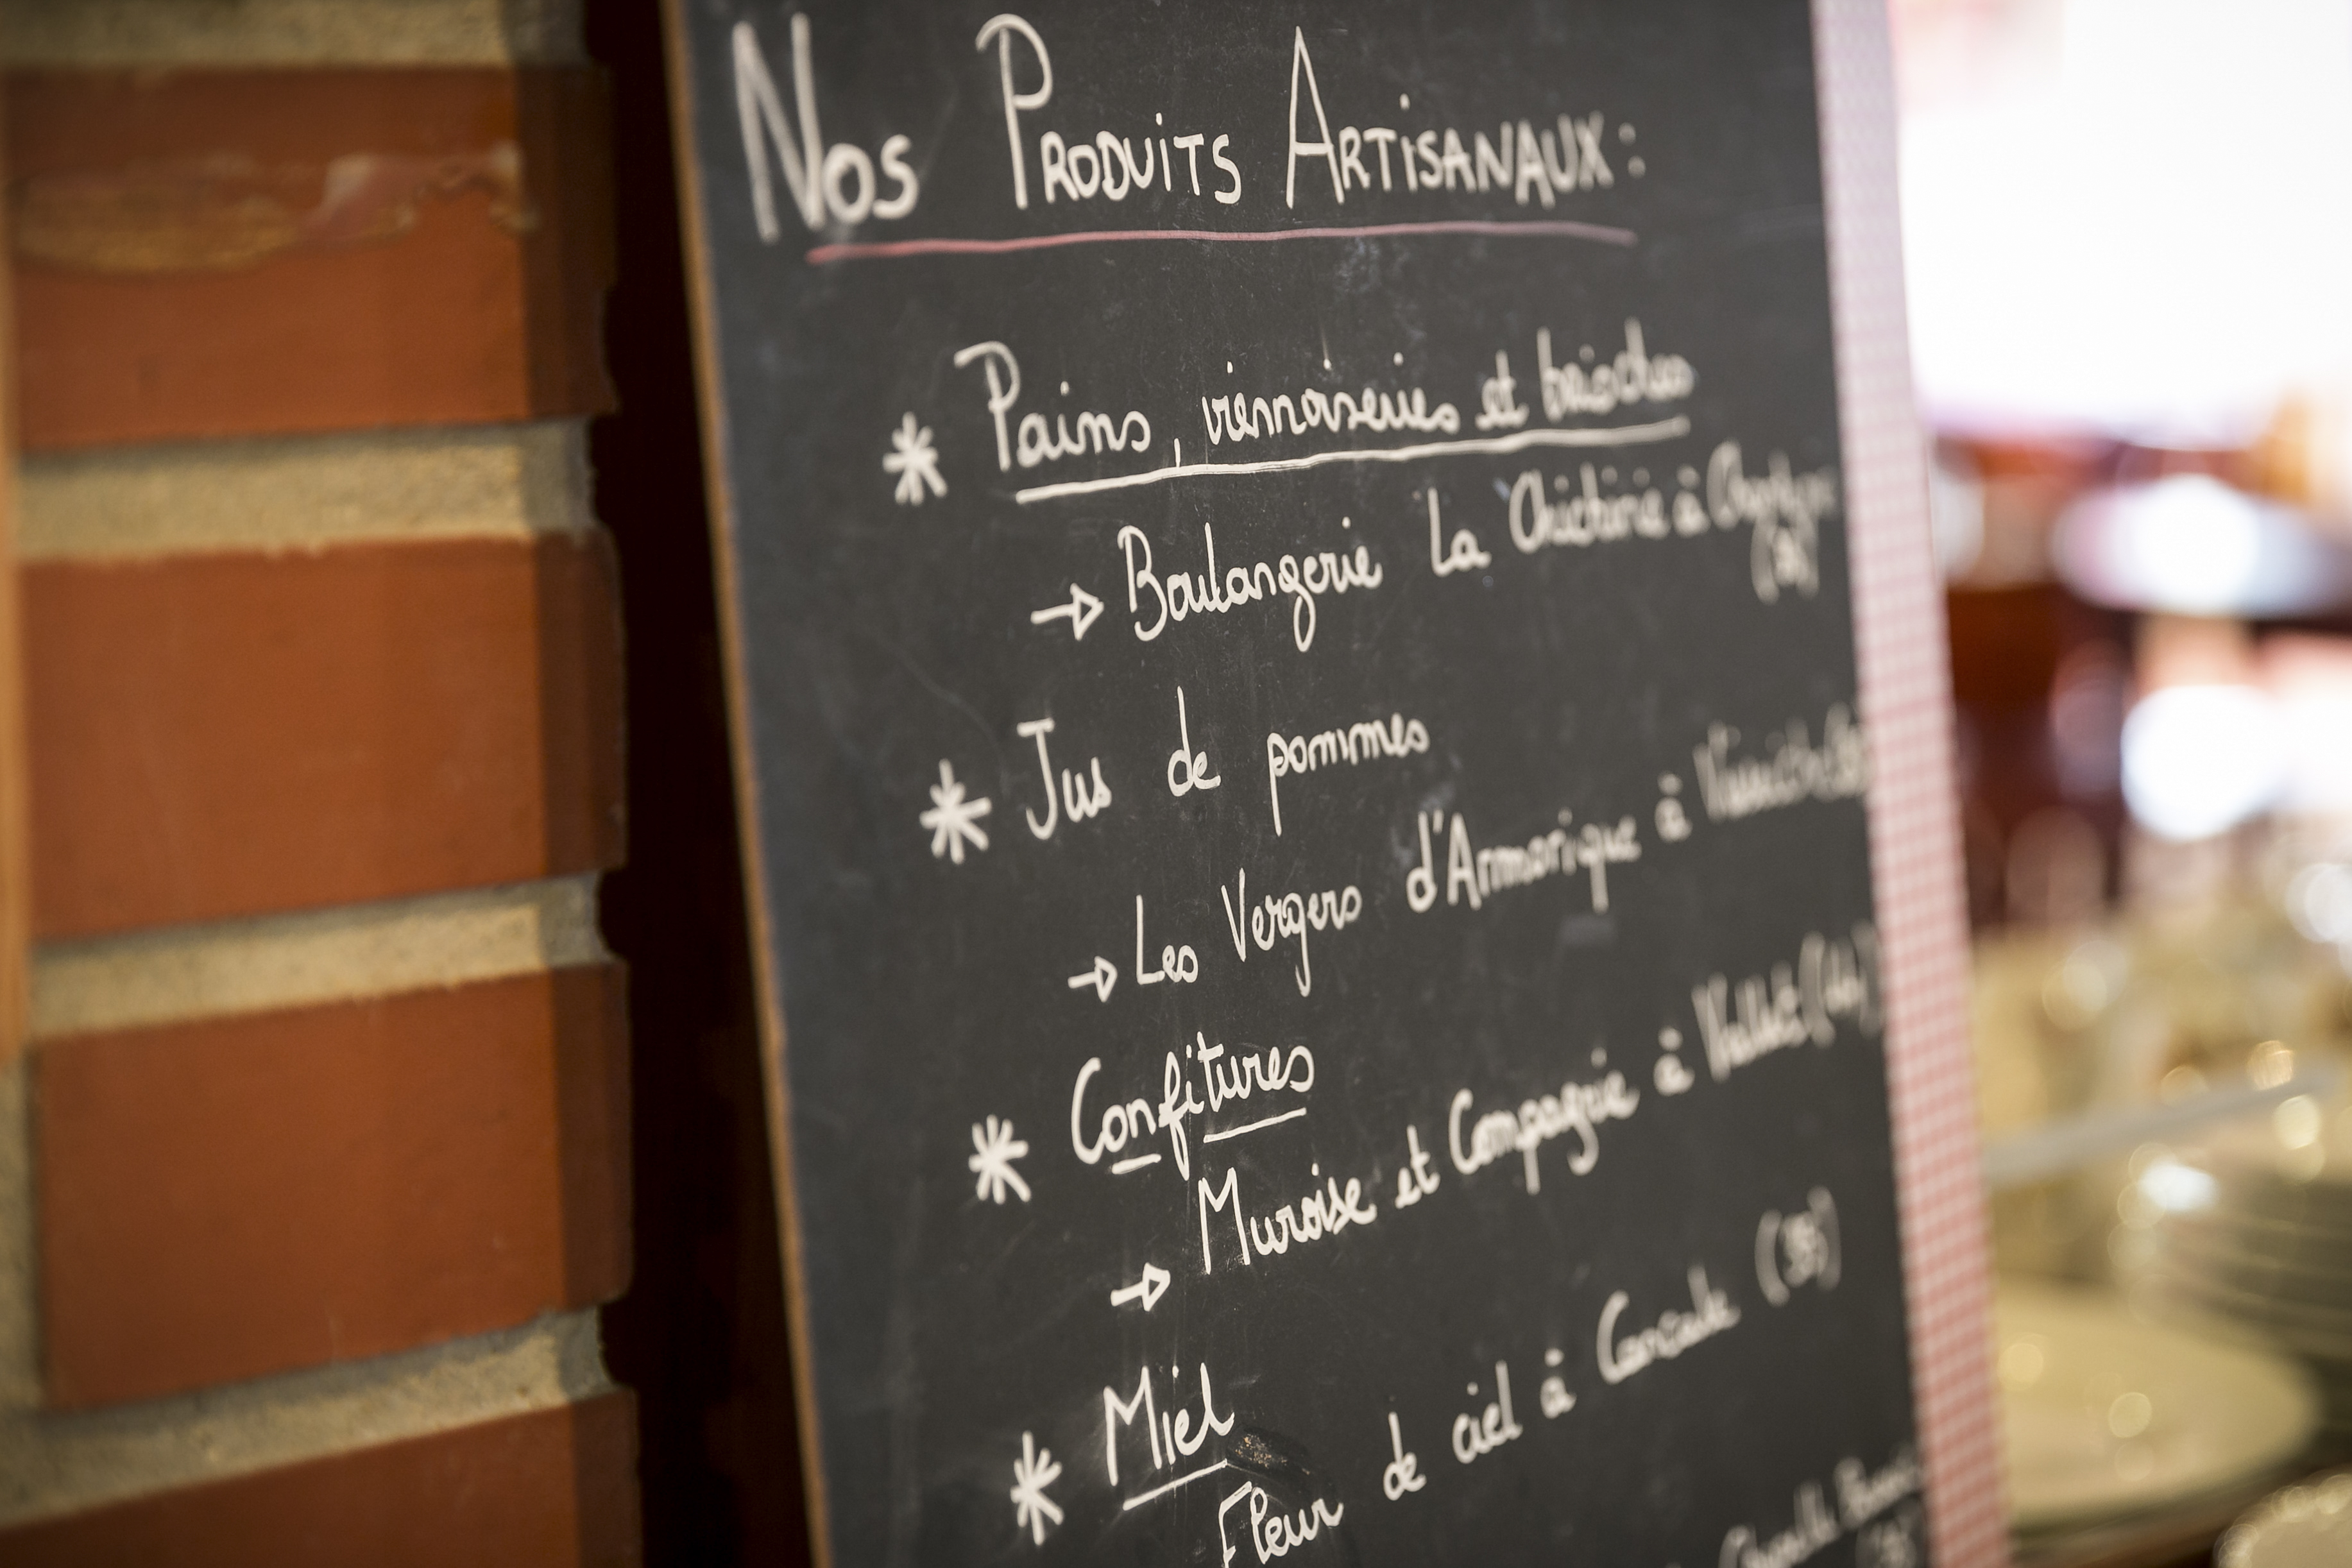 Nos Produits Artisanaux :
* Pains, viennoiseries et brioches
→ Boulangerie La à
* Jus de pommes
→ Les Vergers d'Armorique à
* Confitures
→ Muroise et Compagnie à
* Miel
Fleur de ciel à Cancale (35)